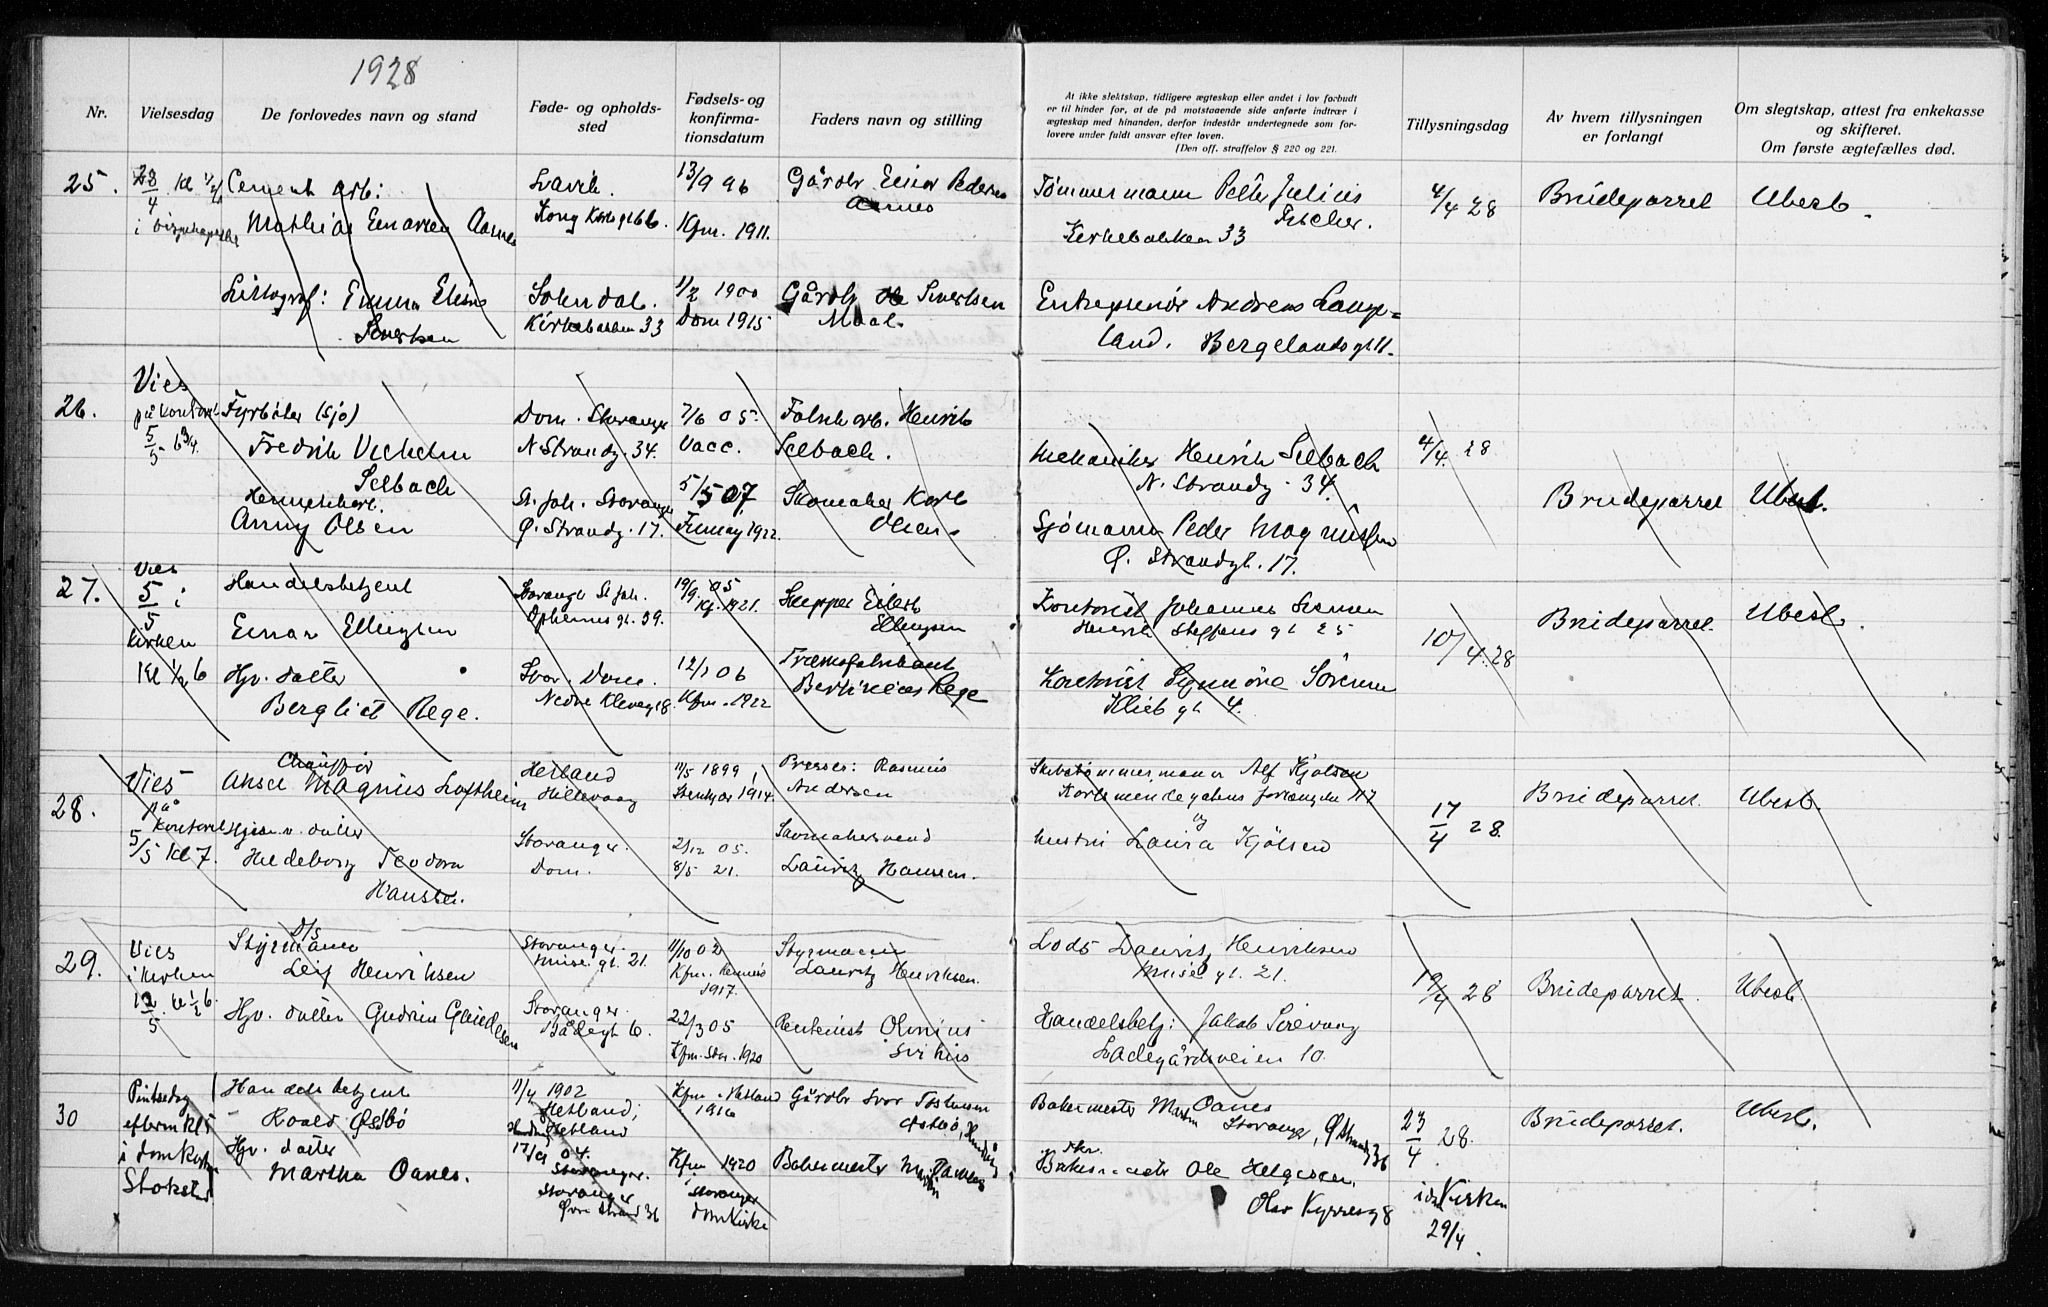 1928
Nr.
Vielsesdag
De forlovedes navn og stand
Føde- og opholds-
sted
Fødsels- og
konfirma-
tionsdatum
Faders navn og stilling
At ikke slektskap, tidligere ægteskap eller andet i lov forbudt
er til hinder for, at de på motstaaende side anførte indtrær i
ægteskap med hinanden, derfor indestår undertegnede som for-
lovere under fuldt ansvar efter loven.
(Den off. straffelov § 220 og 221.
Tillysningsdag
Av hvem tillysningen
er forlangt
Om slegtskap, attest fra enkekasse
og skifteret.
Om første ægtefælles død.
25.
28/4 kl 1/2 6
i
Cement arb:
Mathias Einarsen Aarnes
Lavik.
Kong Karls gt 66
13/9 96
Kfm. 1911.
Gårdbr Einar Pedersen
Aarnes
Tømmermann Petter Julius
Fischer.
Kirkebakken 33
4/4 28
Brudeparret
Ubesl.
Littograf: Emma Eline
Sivertsen
Sokndal.
Kirkebakken 33
1/2 1900
Dom 1915
Gårdbr Sivertsen
Entreprenør Andreas Lange-
land. Bergelandsgt 11.
26.
Vies
på kontoret
5/5 6 3/4
Fyrbøter (sjø)
Fredrik Vilhelm
Selbach
Dom. Stavanger
N Strandg. 34.
7/6 05
Vacc.
Fabrik arb. Henrik
Selbach.
Mekaniker Henrik Selbach
N. Strandg. 34.
4/4. 28
Brudeparret
Ubesl.
Anny Olsen
St. Joh. Stavanger
Ø. Strandg. 17.
5/5 07
1922
Skomaker Karl
Olsen.
Sjømann Peder Magnussen
Ø. Strandgt. 17.
27.
Vies
5/5 i
kirken
kl 1/2 6
Handelsbetjent
Einar Ellingsen
Stavanger St Joh.
gt. 39.
19/9 05
Kf. 1921.
Skipper Eilert
Ellingsen
Kontorist Johannes
Henrik Steffens gt 25
10/4. 28
Brudeparret.
Ubesl.
Hjv. datter
Bergliot Rege.
Stav. Dom.
Nedre Klevegt 8.
12/1 06
Kfm. 1922
Bertinius Rege
Kontorist Sigmóre Sørensen
gt 4.
28.
Vies
på
kontoret
5/5 kl 7.
Chauffør
Aksel Magnus Loftheim
Hetland
Hillevaag
11/5 1899
1914.
Presser: Rasmus
Andersen
Skibstømmermann Alf Kjølsen
forlængelse 117
og
hustru Laura Kjølsen
17/4 28.
Brudeparret.
Ubesl.
Hjem. v. datter
Hildeborg Teodora
Hansen.
Stavanger.
Dom.
2/12 05.
8/5 21.
Skomakersvend
Lauritz Hansen.
29.
Vies
i kirken
12/5. kl 1/2 6.
D/S
Styrmann
Leif Henriksen
Stavanger.
Musé gt. 21.
11/10 02
Kfm.
1917.
Styrmann
Lauritz Henriksen.
Lods Lauritz Henriksen
Musé gt. 21.
19/4 28
Brudeparret.
Ubesl.
Hjv. datter Gudrun
Stavanger.
gt 6.
22/3 05
Kfm. Stav. 1920
Rentenist Olonius
Handelsbetj: Jakob Sirevaag
Ladegårdsveien 10.
30
Pintsedag
efterm kl 5
i domkirken
Stokstad
Handelsbetjent
Roald Østbø
11/4 1902
Hetland;
Hetland
Kfm. Hetland
1916
Gårdbr Ivar Torstensen
Østbø,
Bakermester Martin Oanes
Stavanger, Ø Strand 36
23/4 28.
i Kirken
29/4.
Brudeparret.
Ubesl.
Hjv. datter
Martha Oanes.
04.
Stavanger.
Stavanger
Øvre Strand 36
Kfm 1920
i Stavanger
domkirke
Bakermester Martin Oanes
Bakermester Ole Helgesen,
Olav Kyrresg 8